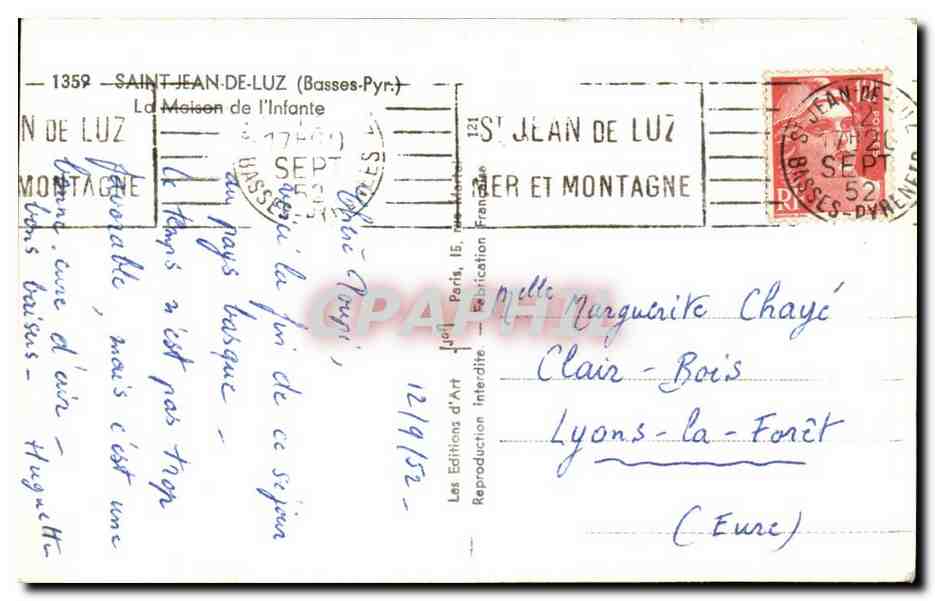 1359 - SAINT-JEAN-DE-LUZ (Basses-Pyr.)
La Maison de l'Infante
N DE LUZ
MONTAGNE
SEPT
52
ST JEAN DE LUZ
MER ET MONTAGNE
ST JEAN DE LUZ
SEPT
52
BASSES-PYRENEES
12/9/52 -
Chère
voici la fin de ce séjour
au pays basque -
Le temps n'est pas trop
favorable, mais c'est une
bonne cure d'air -
bons baisers - Huguette
Les Editions d'Art
Paris, 15,
121
Reproduction interdite - Fabrication Française
Melle Marguerite Chayé
Clair-Bois
Lyons-la-Forêt
(Eure)
CPAPHIL